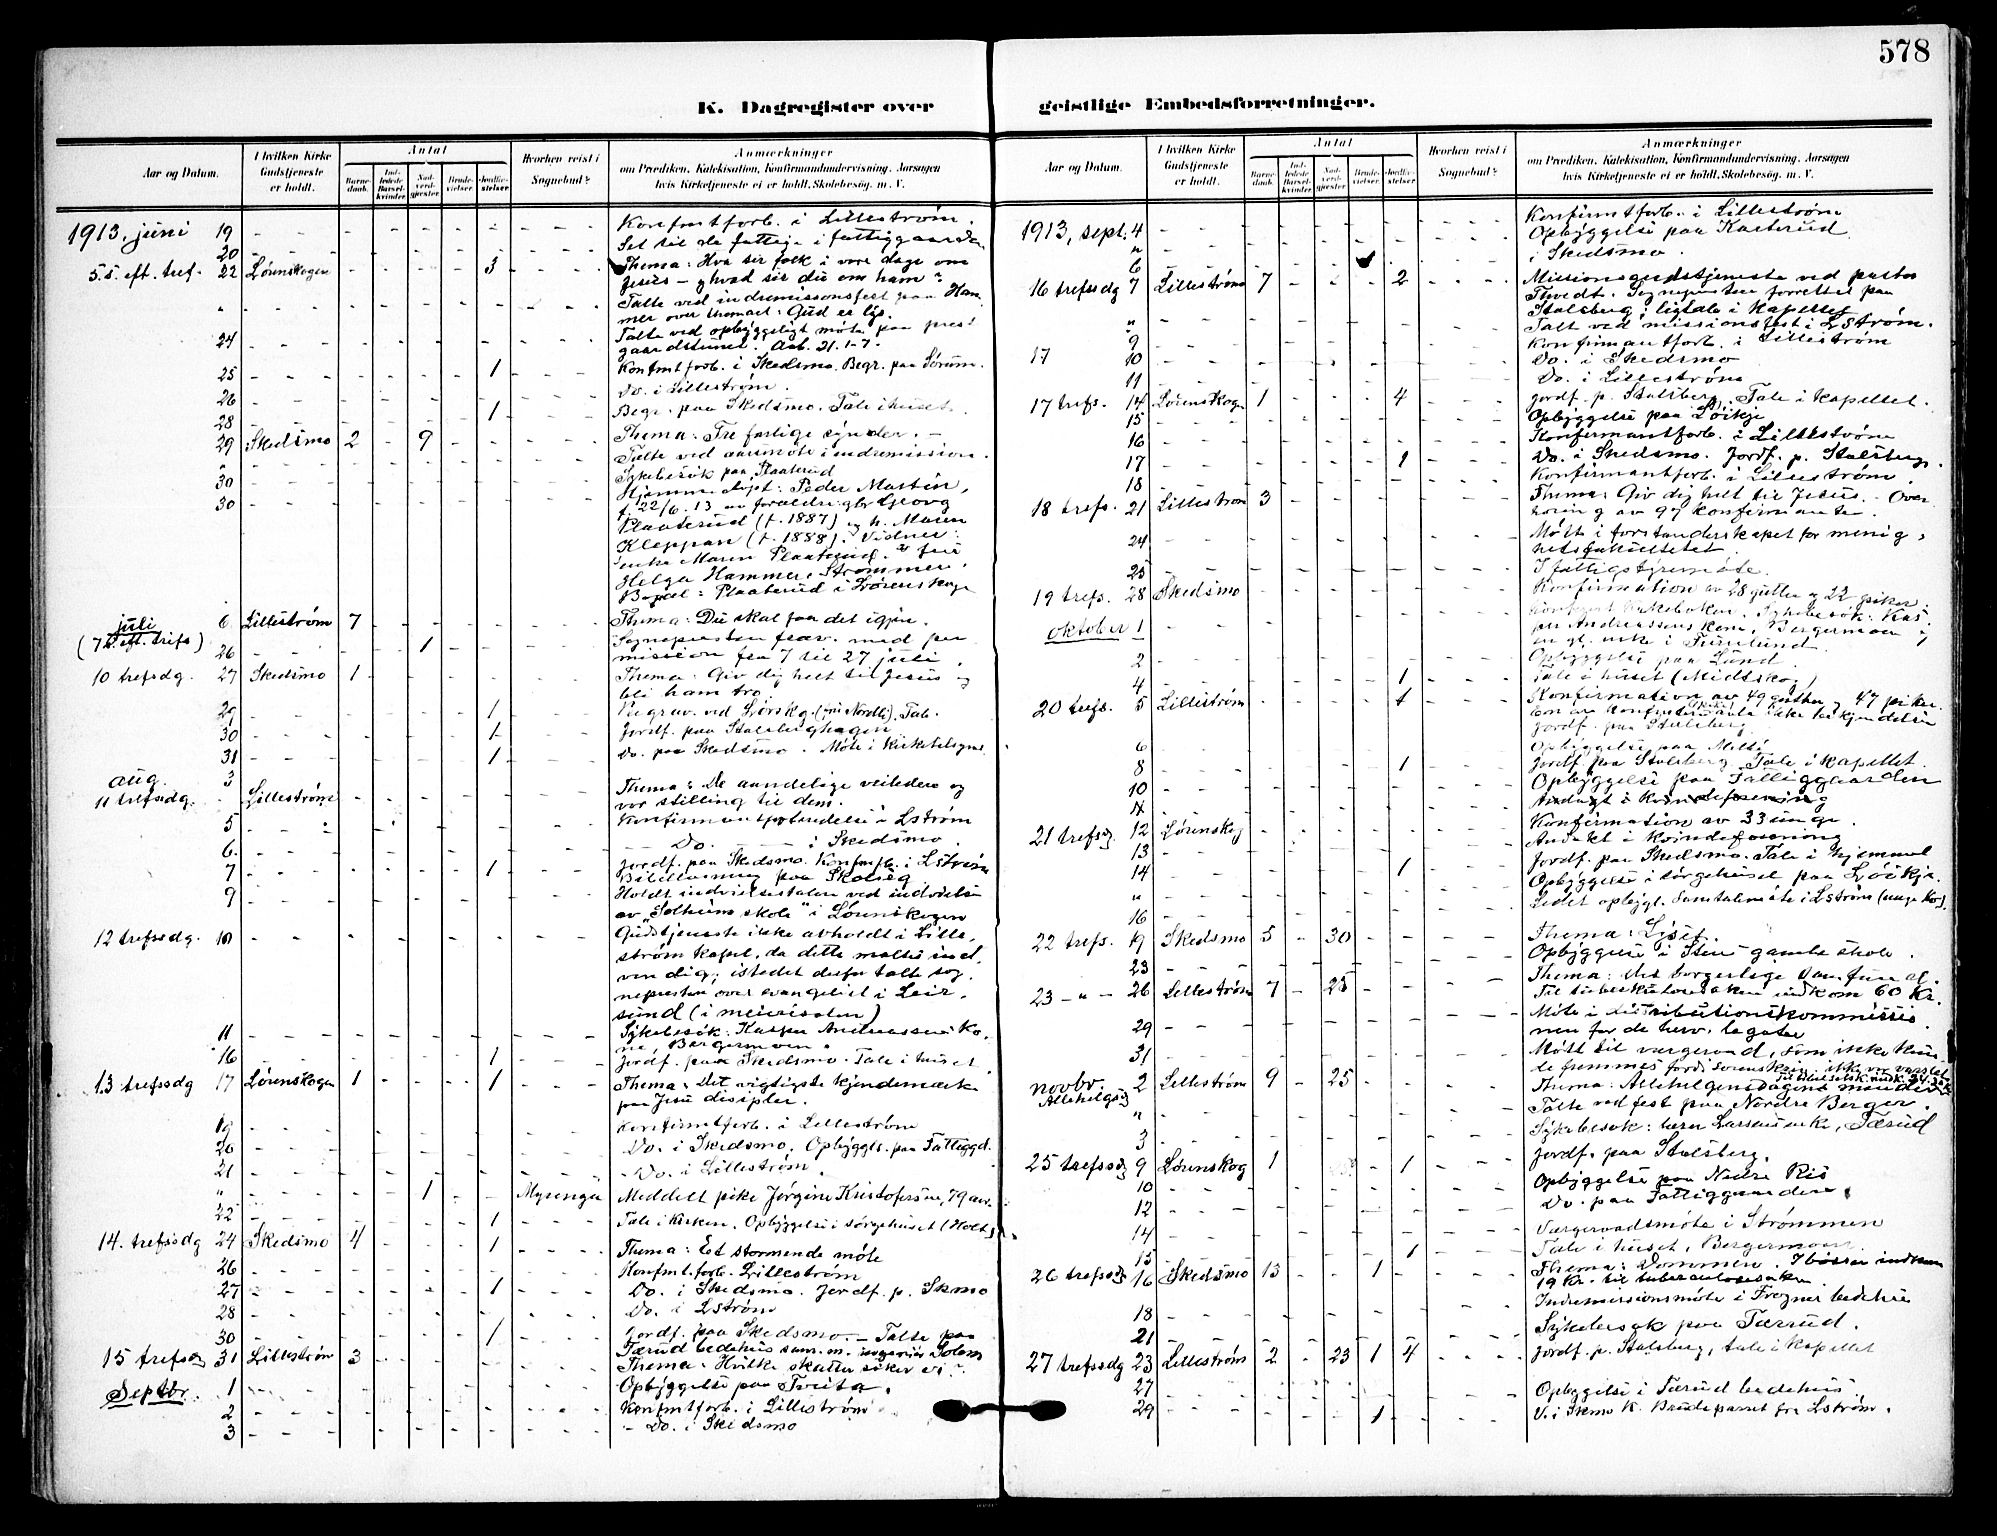 578
K. Dagregister over geistlige Embedsforretninger.
Aar og Datum.
I hvilken Kirke Gudstjeneste er holdt.
Antal
Barnedaab.
Indledede Barselkvinder
Nadverdgjester
Brudevielser
Jordfæstelser
Hvorhen reist i Sognebud?
Anmærkninger
om Prædiken, Katekisation, Konfirmandundervisning, Aarsagen
hvis Kirketjeneste ei er holdt, Skolebesøg. m. V.
1913, juni 19 - - Konfmtforb. i Lillestrøm.
20 - - Set til de fattige i fattiggaarden
5 s. eft. tref. 22 Lørenskogen 3 Thema: Hva sir folk i vore dage om
Jesus – og hvad sir du om ham?
" Talte ved indremissonsfest paa Ham
mer over themaet: Gud er lys.
24 Talte ved opbyggeligt møte paa prest
gaardstunet. Aab. 21. 1-7.
25 1 Konfmtforb. i Skedsmo. Begr. paa Sørum.
26 Do. i Lillestrøm.
28 1 Begr. paa Skedsmo. Tale i huset.
29 Skedsmo 2 9 Thema: Tre farlige synder. –
" Talte ved aarsmøte i indremission.
30 Sykebesøk paa Plaaterud
30 Hjemmedøpt: Peder Martin,
f. 22/6. 13 av forældre gbr Georg
Plaaterud (f. 1887) og h. Maren
Kleppan (f. 1888). Vidner:
enke Maren Plaaterud, fru
Helga Hammer, Strømmen.
Bopæl: Plaaterud i Lørenskoge
juli 6 Lillestrøm 7 Thema: Du skal faa det igjen.
(7 s. eft. trefs) 26 1 Sognepresten frav. med per
mission fra 7 til 27 juli.
10 trefsdg. 27 Skedsmo 1 Thema: Giv dig helt til Jesus og
bli ham tro.
29 1 Begrav. ved Lørskg. (fru Nordli). Tale.
30 1 Jordf. paa Stalsberghagen
31 1 Do. paa Skedsmo. Møte i kirketilsynet
aug. 3
11 trefsdg. Lillestrøm Thema: De aandelige veiledere og
vor stilling til dem.
5 Konfirmantforberedelse i Lstrøm
6. Do. i Skedsmo.
7 1 Jordf. paa Skedsmo. Konfmfb. i Lstrøm
9 Bibellæsning paa Skolseg
Holdt indvielsestalen ved indvielse
av "Solheim skole" i Lørenskogen
12 trefsdg. 10 Gudstjeneste ikke avholdt i Lille-
strøm kapel, da dette maltes ind-
vendig; istedet derfor talte sog-
nepresten over evangeliet i Leir-
sund (i meierisalen)
11 Sykebesøk: Kasper Andreassens ko-
ne, Bergermoen.
16 1 Jordf. paa Skedsmo. Tale i huset.
13 trefsdg 17 Lørenskogen 1 1 Thema: Det vigtigste kjendemærke
paa Jesu disipler.
19 Konfirmtforb. i Lillestrøm
20 Do. i Skedsmo. Opbyggls. paa Fattiggd.
21 Do. i Lillestrøm.
" 1 Mysengen Meddelt pike Jørgine Kristofersen, 79 aar.
22 1 Tale i kirken. Opbyggelse i sørgehuset (Holt)
14. trefsdg 24 Skedsmo 4 1 Thema: Et stormende møte
26 Konfmt.forb. Lillestrøm
27 1 Do. i Skedsmo. Jordf. p. Skmo
28 Do. i Lstrøm
30 1 Jordf. paa Skedsmo. – Talte paa
Færud bedehus
15 trefsdg 31 Lillestrøm 3 Thema: Hvilke skatter søker vi?
Septbr. 1 Opbyggelse paa Tveita.
2 Konfmtforb. i Lillestrøm
3 Do. i Skedsmo
1913, sept. 4 Konfirmtforb. i Lillestrøm
" Opbyggelse paa Kasterud
6 i Skedsmo.
16 trefsdg 7 Lillestrøm 7 2 Missionsgudstjeneste ved pastor
Thvedt. Sognepresten forrettet paa
Stalsberg; ligtale i kapellet
" Talt ved missionsfest i Lstrøm.
9 Konfirmantforb. i Lillestrøm
17 10 Do. i Skedsmo
11 Do. i Lillestrøm
17 trefs. 14 Lørenskogen 1 4 Jordf. p. Stalsberg. Tale i kapellet.
15 Opbyggelse paa Løikje
16 Konfirmantforb. i Lillestrøm
17 1 Do. i Skedsmo. Jordf. p. Stalsberg.
18 Konfirmantforb. i Lillestrøm.
18 trefs. 21 Lillestrøm 3 Thema: Giv dig helt til Jesus. – Over
høring av 97 konfirmanter.
24 Møtt i forstanderskapet for menig-
hetsfakultetet.
25 I fattigstyremøte.
19 trefs. 28 Skedsmo Konfirmation av 28 gutter og 22 piker
oktober 1 Sykebesøk: Kas-
per Andreassens kone, Bergermoen og
en gl. enke i Furulund.
2 Opbyggelse paa Lund.
4 1 Tale i huset (Midtskog)
20 trefs. 5 Lillestrøm 1 Konfirmation av 49 gutter og 47 piker.
Jordf. paa Stalsberg
6 Opbyggelse paa Melli
8 1 Jordf. paa Stalsberg. Tale i kapellet.
10 Opbyggelse paa Fattiggaarden
Andagt i kvindeforening
21 trefsdg 12 Lørenskog Konfirmation av 33 unge.
13 Andakt i kvindeforening
14 1 Jordf. paa Skedsmo. Tale i hjemmet
" Opbyggelse i sørgehuset paa Løikje.
16 Ledet opbygl. samtalemøte i Lstrøm
22 trefs. 19 Skedsmo 5 30 Thema: Liset.
23 Opbyggelse i Sten gamle skole.
23 – " – 26 Lillestrøm 7 25 Thema: Det borgerlige samfund
Til tuberkulosesaken indkom 60 Kr.
29 Møte i distributionskommissio
nen for de herv. legater
31 Møtt til vergeraad, som ikke kun-
de fremmes
novbr. 2 Lillestrøm 9 25 Thema: Allehelgensdagens
Allehelgsdg
" Talte ved fest paa Nordre Berger.
3 Sykebesøk: Færud
25 trefsdg 9 Lørenskog 1 1 Jordf. paa Stalsberg.
10 Opbyggelse paa Nedre Ris
12 Do. paa Fattiggaarden.
14 Vergeraadsmøte i Strømmen
15 1 Tale i huset, Bergermoen.
26 trefsdg 16 Skedsmo 13 1 Thema: Dommen. I bøssen indkom
19 Kr. til tuberkulosesaken.
18 Indremissionsmøte i Frogner bedehus
21 Sykebesøk paa Færud.
27 trefsdg 23 Lillestrøm 2 23 1 4 Jordf. p. Stalsberg, tale i kapellet
27 Opbyggelse i Færud bedehus.
29 1 V. i Skmo K. Brudeparret fra Lstrøm.